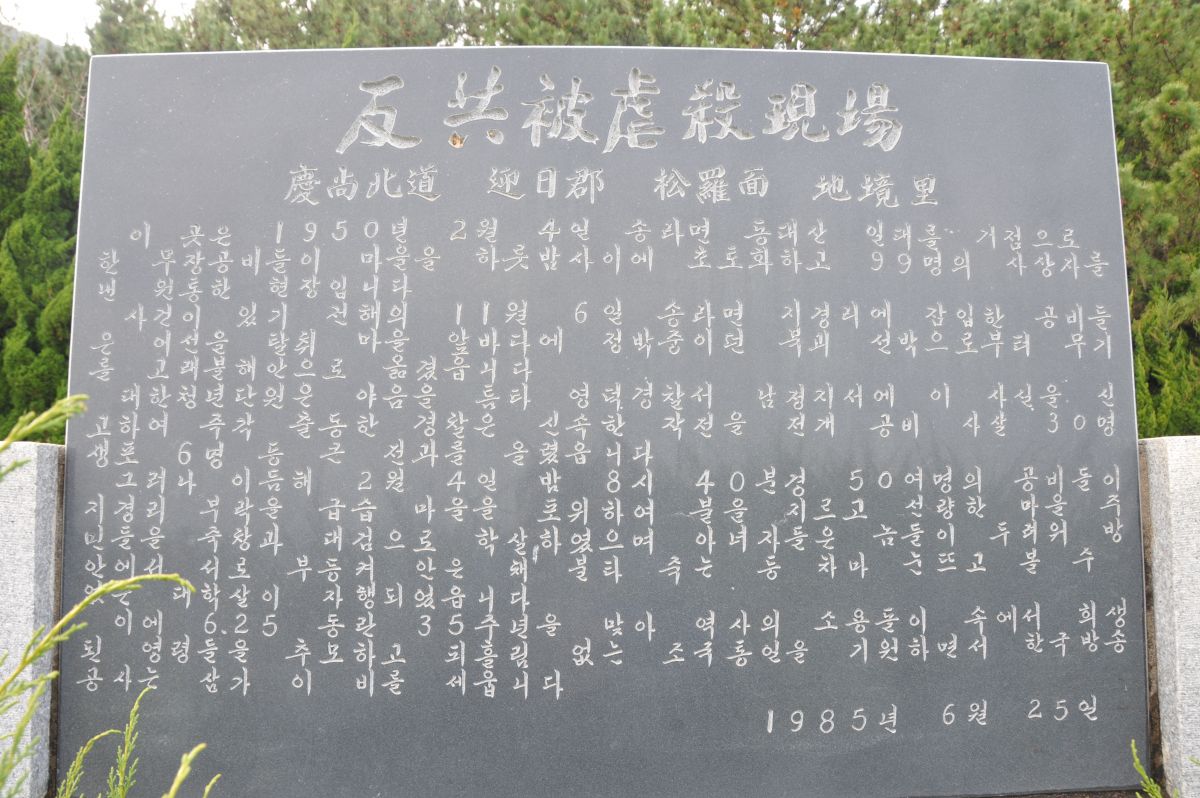 反共被虐殺現場
慶尚北道 迎日郡 松羅面 地境里
이 곳은 1950년 2월 4일 송라면 동대산 일대를 거점으로
한 무장공비들이 마을을 하룻밤사이에 초토화하고 99명의 사상자를
낸 원통한 현장입니다
사건이 있기 전해의 11월 6일 송라면 지경리에 잠입한 공비들
은 어선을 탈취 마을 앞바다에 정박중이던 북괴선박으로부터 무기
를 고래불 해안으로 옮겼읍니다
대한청년단원은 야음을 틈타 영덕경찰서 남정지서에 이 사실을 신
고하여 즉각 출동한 경찰은 신속한 작전을 전개 공비 사살 30명
생포 6명 등 큰 전과를 올렸읍니다
그러나 이듬해 2월 4일 밤 8시 40분경 50여명의 공비들이
지경리 부락을 급습 마을을 포위하여 불을지르고 선량한 마을주
민들을 죽창과 대검으로 학살하였으며 분녀자들은 놈들이 두려워 방
안에서 서로 부등켜 안은채 불타 는등 차마 눈뜨고 볼 수
없는 대학살이 자행되었읍니다
이에 6.25 동란 35주년을 맞아 역사의 소용돌이 속에서 희생
된 영령들을 추모하고 피흘림 없는 조국통일을 기원하면서 한국방송
공사는 삼가 이 비를 세웁니다
1985년 6월 25일